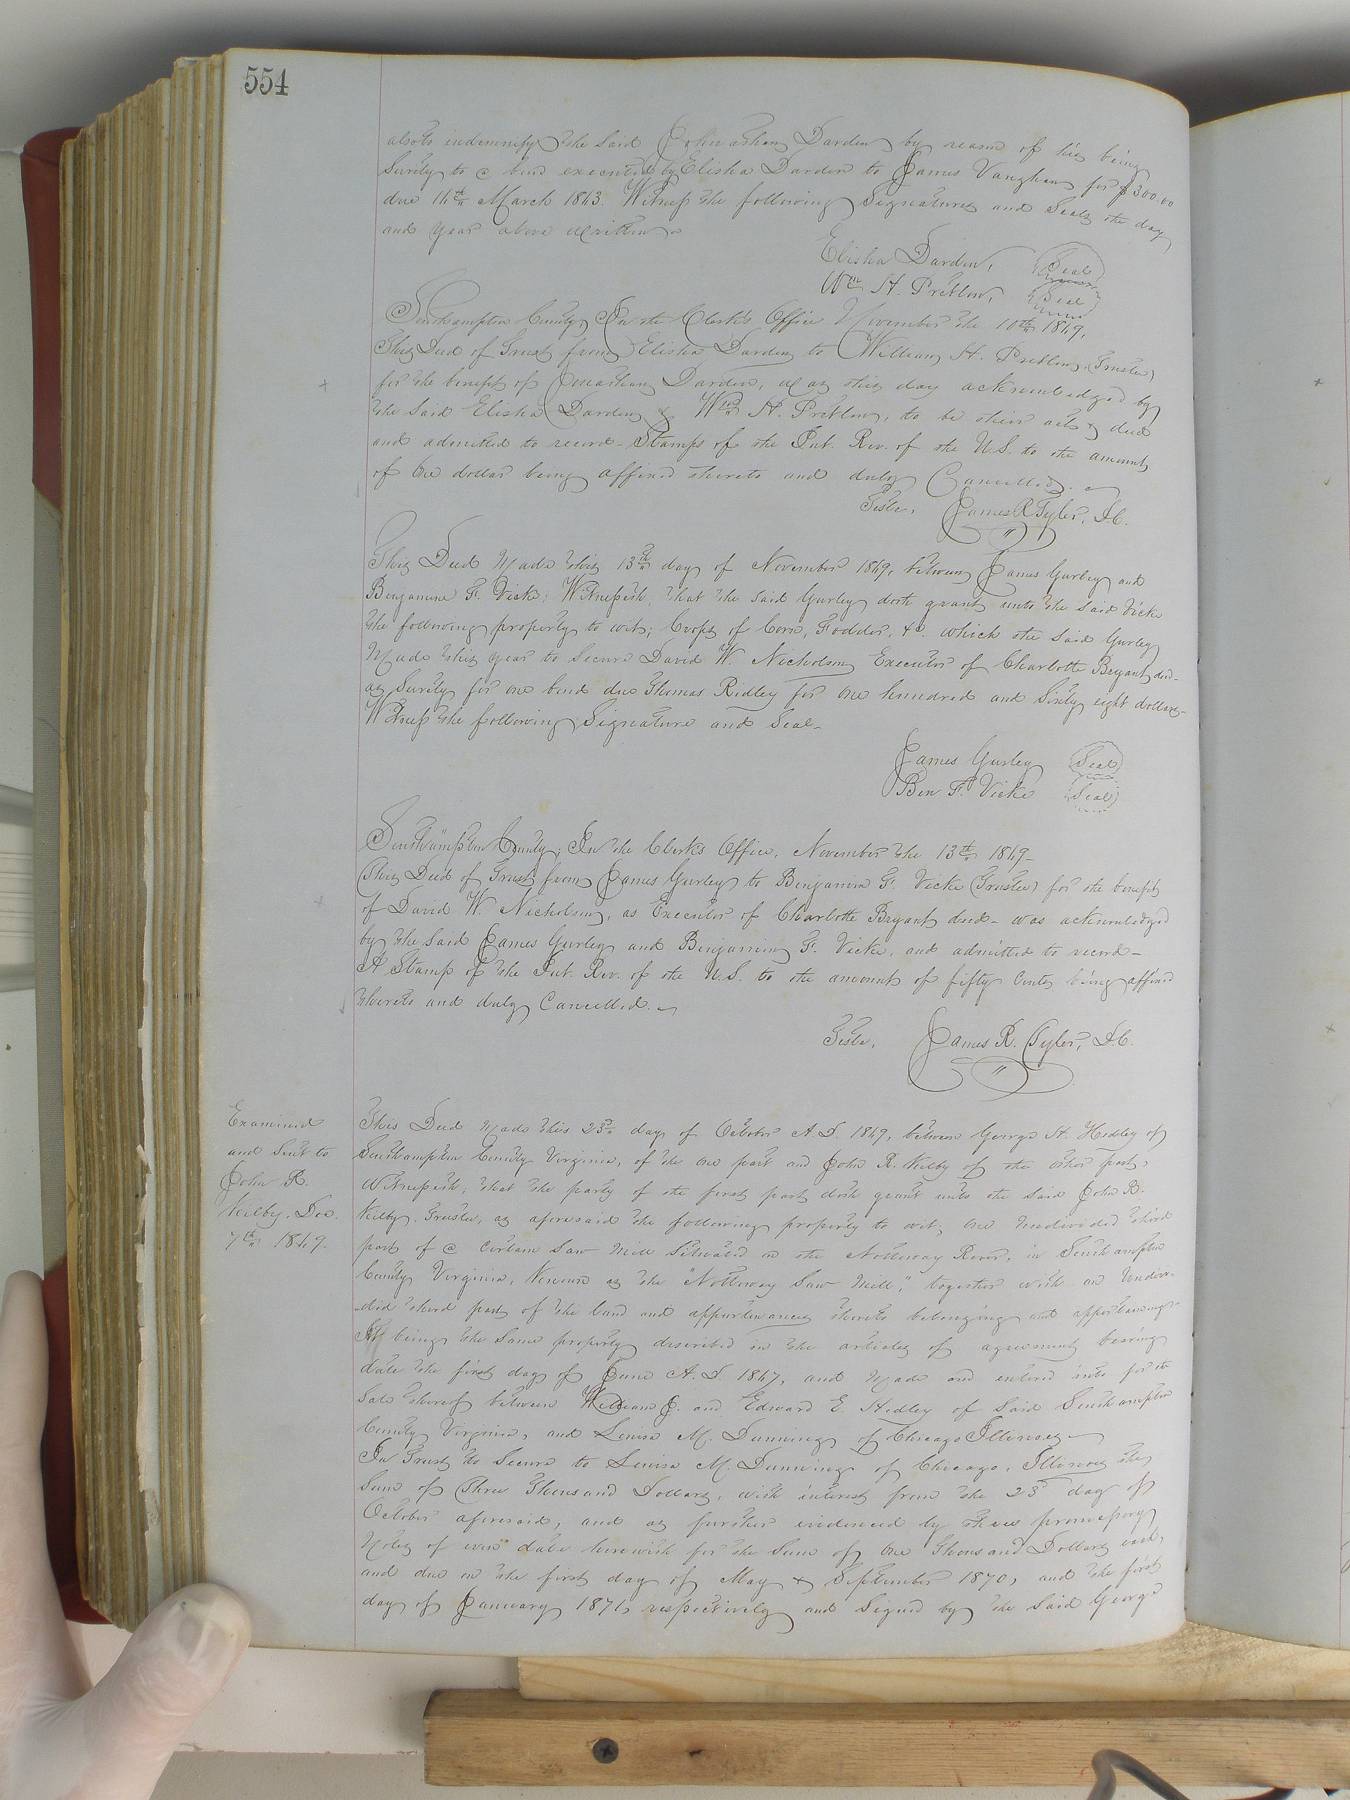 554
also to indemnify the said Jonathan Darden by reason of his being
Surety to a bond executed by Elisha Darden to James Vaughan for $300.00
due 11th March 1863. Witness the following Signatures and Seals the day
and year above written
Elisha Darden, Seal
Wm H. Pretlow, Seal
Southampton County, In the Clerk's Office November the 10th 1869,
This Deed of Trust from Elisha Darden to William H. Pretlow, (Trustee)
for the benefit of Jonathan Darden, was this day acknowledged by
the said Elisha Darden & Wm H. Pretlow, to be their act & deed
and admitted to record - Stamps of the Int. Rev. of the U.S. to the amount
of One dollar being affixed thereto and duly Cancelled.
Teste, James R. Tyler, D.C.
This Deed Made this 13th day of November 1869, between James Gurley and
Benjamine F. Vick; Witnesseth, that the said Gurley doth grant unto the said Vick
the following property to wit; Crops of Corn, Fodder, &c. which the said Gurley
Made this year to Secure David W. Nicholson Executor of Charlotte Bryant decd-
as Surety for one bond due Thomas Ridley for One hundred and Sixty eight dollars-
Witness the following Signature and Seal-
James Gurley Seal
Ben F. Vick Seal
Southampton County; In the Clerk's Office, November the 13th 1869-
This Deed of Trust from James Gurley to Benjamin F. Vick (Trustee) for the benefit
of David W. Nicholson, as Executor of Charlotte Bryant decd- was acknowledged
by the said James Gurley and Benjamin F. Vick, and admitted to record-
A Stamp of the Int. Rev. of the U.S. to the amount of fifty Cents being affixed
thereto and duly Cancelled.
Teste, James R. Tyler, D.C.
Examined
and Sent to
John R.
Kilby. Dec.
7th 1869.
This Deed Made this 23rd day of October A.D. 1869, between George H. Hedley of
Southampton County Virginia, of the one part and John R. Kilby of the other part,
Witnesseth, that the party of the first part doth grant unto the said John R.
Kilby, Trustee, as aforesaid the following property to wit; One Undivided third
part of a certain Saw Mill Situated on the Nottoway River, in Southampton
County Virginia, Known as the "Nottoway Saw Mill," together with an Undivi-
-ded third part of the land and appurtenances thereto belonging and appertaining
It being the same property described in the articles of agreement bearing
date the first day of June A.D. 1867, and made and entered into for the
Sale thereof between William J. and Edward E. Hedley of Said Southampton
County Virginia, and Louisa M. Dunning of Chicago Illinois
In Trust to Secure to Louisa M. Dunning of Chicago, Illinois the
Sum of Three Thousand Dollars, with interest from the 23d day of
October aforesaid, and as further evidenced by three promissory
Notes of even date herewith for the sum of One Thousand Dollars each,
and due on the first day of May & September 1870, and the first
day of January 1871, respectively and Signed by the said George